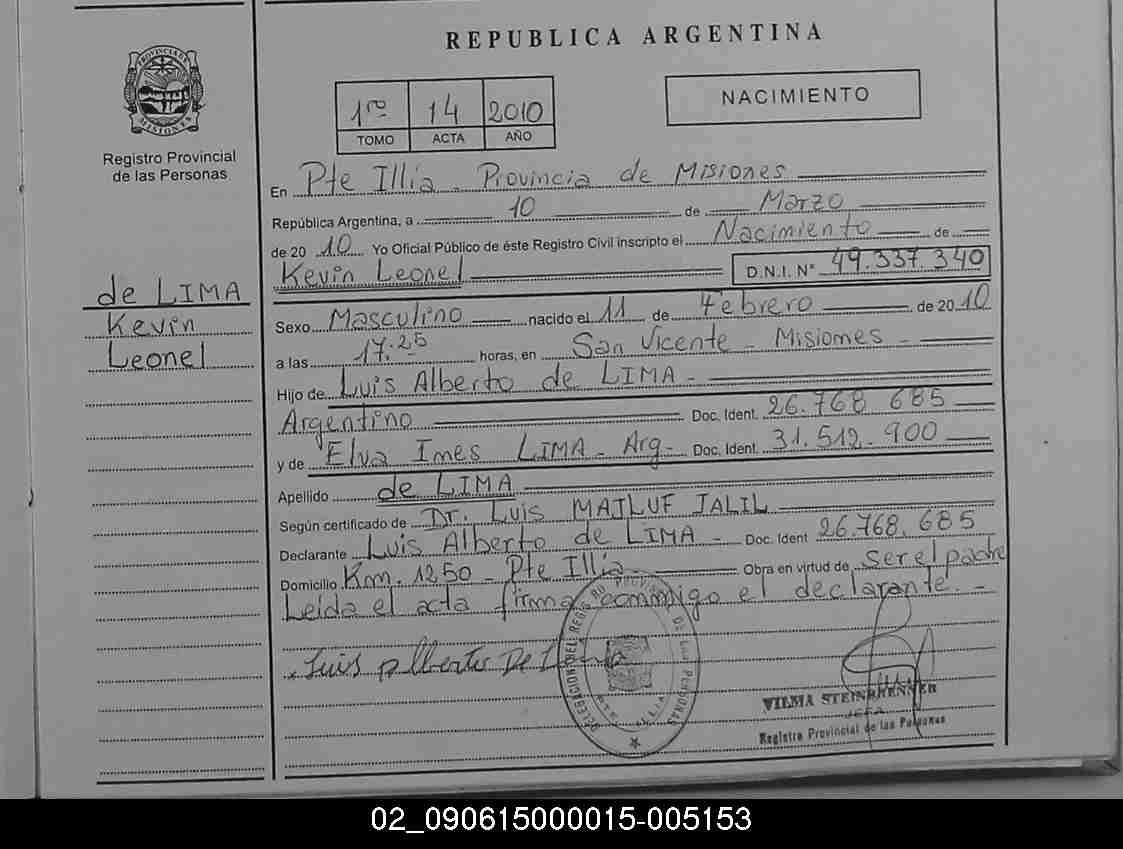 REPUBLICA ARGENTINA
PROVINCIA DE MISIONES
Registro Provincial
de las Personas
1ro 14 2010
TOMO ACTA AÑO
NACIMIENTO
En Pte Illia - Provincia de Misiones
República Argentina, a 10 de Marzo
de 20 10 Yo Oficial Público de éste Registro Civil inscripto el Nacimiento de
Kevin Leonel D.N.I. N° 49.337.340
de LIMA
Kevin
Leonel
Sexo Masculino nacido el 11 de Febrero de 20 10
a las 17:25 horas, en San Vicente - Misiones -
Hijo de Luis Alberto de LIMA -
Argentino Doc. Ident. 26.768 685
y de Elva Ines LIMA - Arg - Doc. Ident. 31.512.900
Apellido de LIMA
Según certificado de Dr. Luis MAILUF JALIL
Declarante Luis Alberto de LIMA - Doc. Ident 26.768.685
Domicilio Km. 1250 - Pte Illia Obra en virtud de ser el padre
Leida el acta firma conmigo el declarante. -
Luis Alberto De Lima
DELEGACION DEL REGISTRO PROVINCIAL DE LAS PERSONAS
VILMA STEINBRENNER
JEFA
Registro Provincial de las Personas
02_090615000015-005153